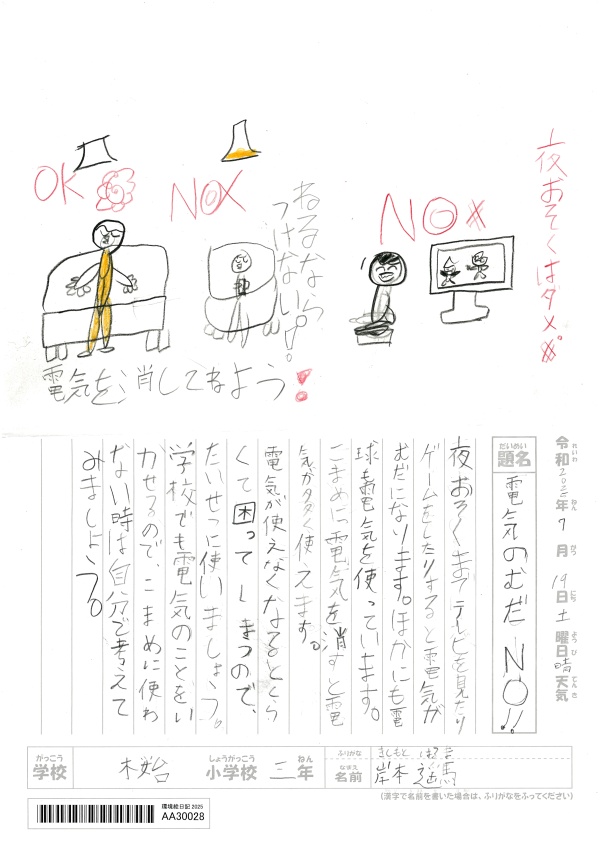 夜おそくはダメ。
OK
NO
ねるなら
つけない!!
NO
電気を消してねよう!
令和2025年7月19日土曜日晴天気
れいわ ねん がつ にち ようび てんき
だいめい
題名
電気のむだNO!!
夜おそくまでテレビを見たり
ゲームをしたりすると電気が
むだになります。ほかにも電
球も電気を使っています。
こまめに電気を消すと電
気が多く使えます。
電気が使えなくなるとくら
くて困ってしまうので、
たいせつに使いましょう。
学校でも電気のことをい
かせるので、こまめに使わ
ない時は自分で考えて
みましょう。
がっこう
学校
しょうがっこう
小学校
三年
ねん
ふりがな
きしもと はるま
なまえ
名前
岸本 遥馬
(漢字で名前を書いた場合は、ふりがなをふってください)
環境絵日記 2025
AA30028